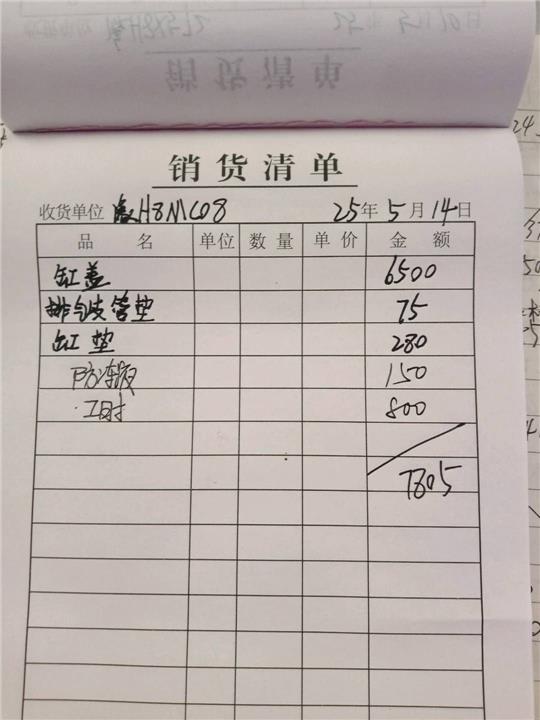 销货清单
收货单位 H8MC08 25年5月14日
品名 单位 数量 单价 金额
缸盖 6500
排气支管垫 75
缸垫 280
防冻液 150
工时 800
7805